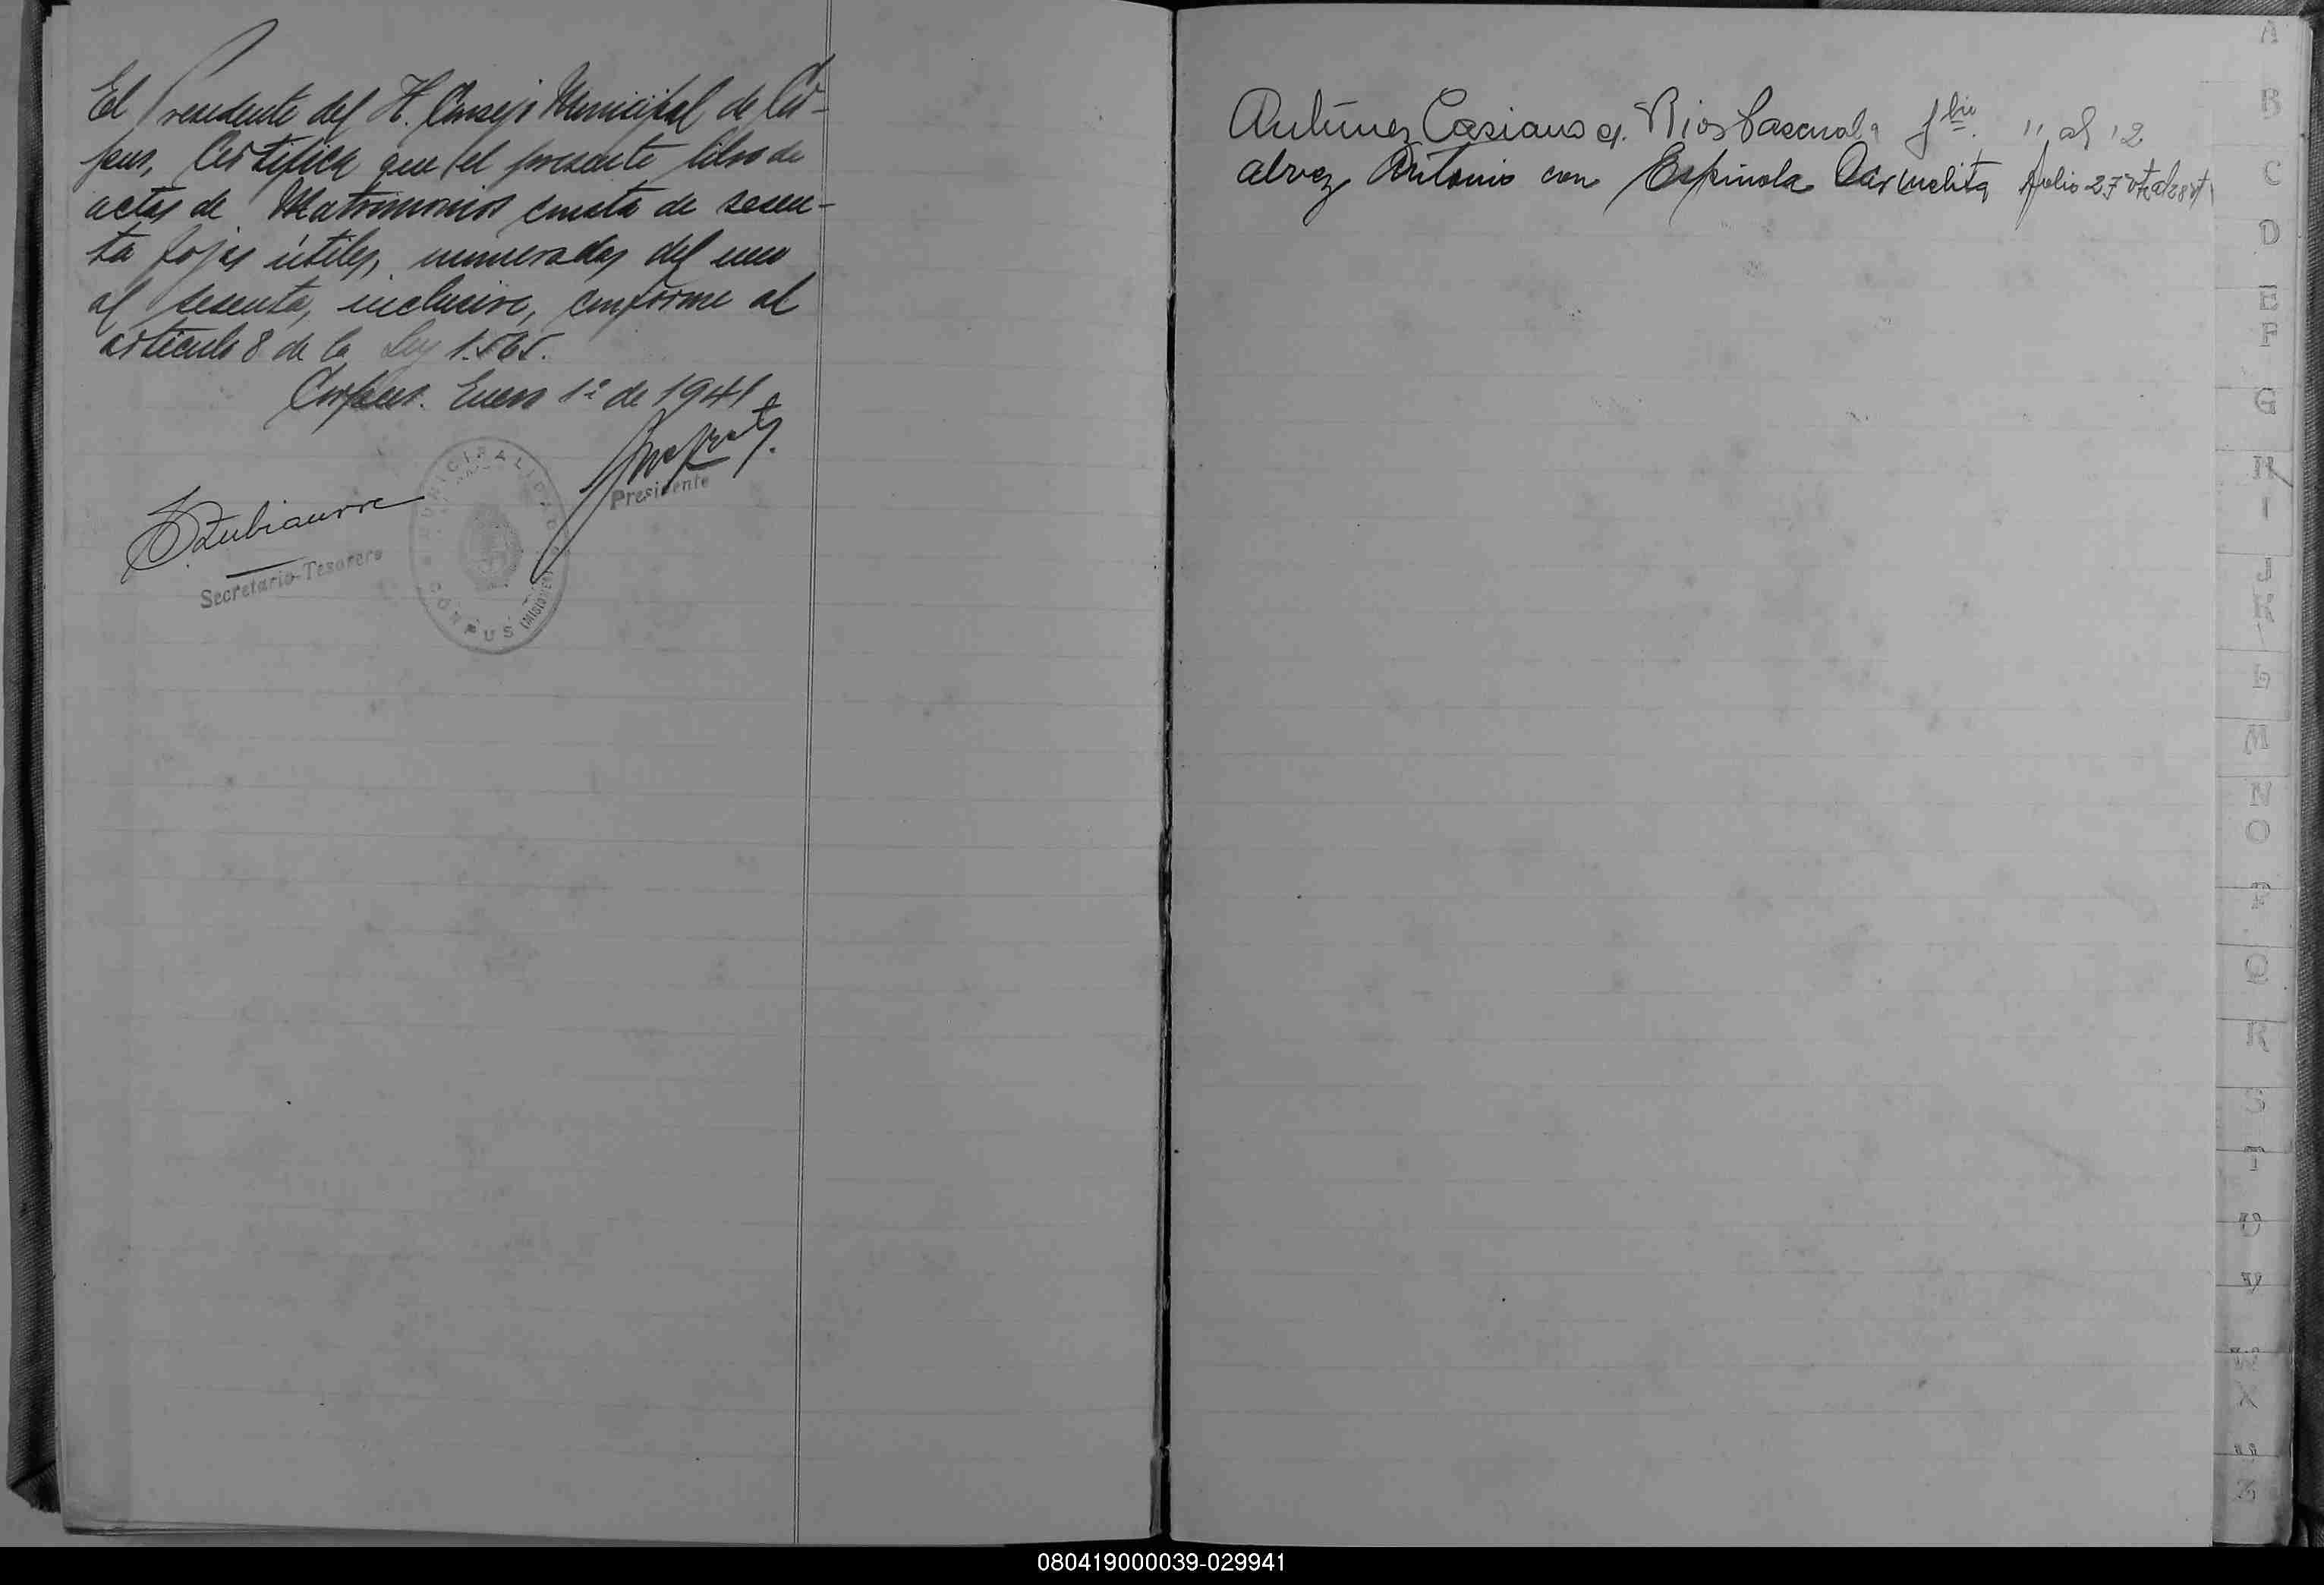 El Presidente del H. Consejo Municipal de Cor-
pus, Certifica que el presente libro de
actas de Matrimonios consta de sesen-
ta fojas útiles, numeradas del uno
al sesenta, inclusive, conforme al
artículo 8 de la Ley 1.565.
Corpus. Enero 1º de 1941
Presidente
Zubiaurre
Secretario-Tesorero
MUNICIPALIDAD
CORPUS (MISIONES)
Antúnez Casiano c/. Rios Pascuala flio. 11 al 12
Alvez Antonio con Espinola Carmelita folio 27 vta al 28 vt
A
B
C
D
E
F
G
H
I
J
K
L
M
N
O
P
Q
R
S
T
U
V
W
X
Y
Z
080419000039-029941